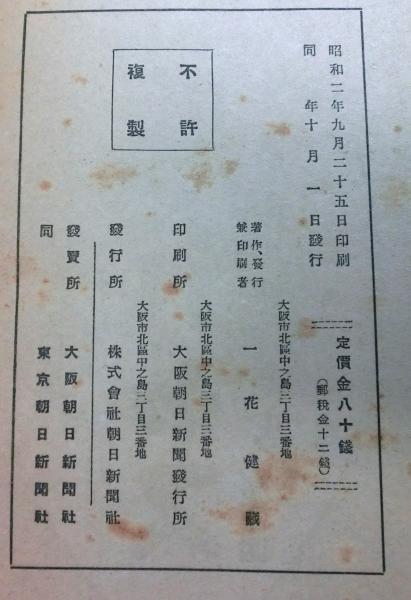 昭和二年九月二十五日印刷
同 年十月一日發行
定價金八十錢
(郵稅金十二錢)
不許
複製
大阪市北區中之島三丁目三番地
著作、發行
兼印刷者
一花健藏
大阪市北區中之島三丁目三番地
印刷所 大阪朝日新聞發行所
大阪市北區中之島三丁目三番地
發行所 株式會社朝日新聞社
發賣所 大阪朝日新聞社
同 東京朝日新聞社